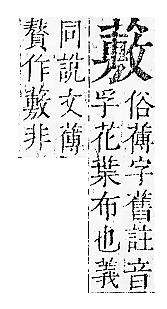 俗字舊註音
孚花葉布也義
同說文
贅作非